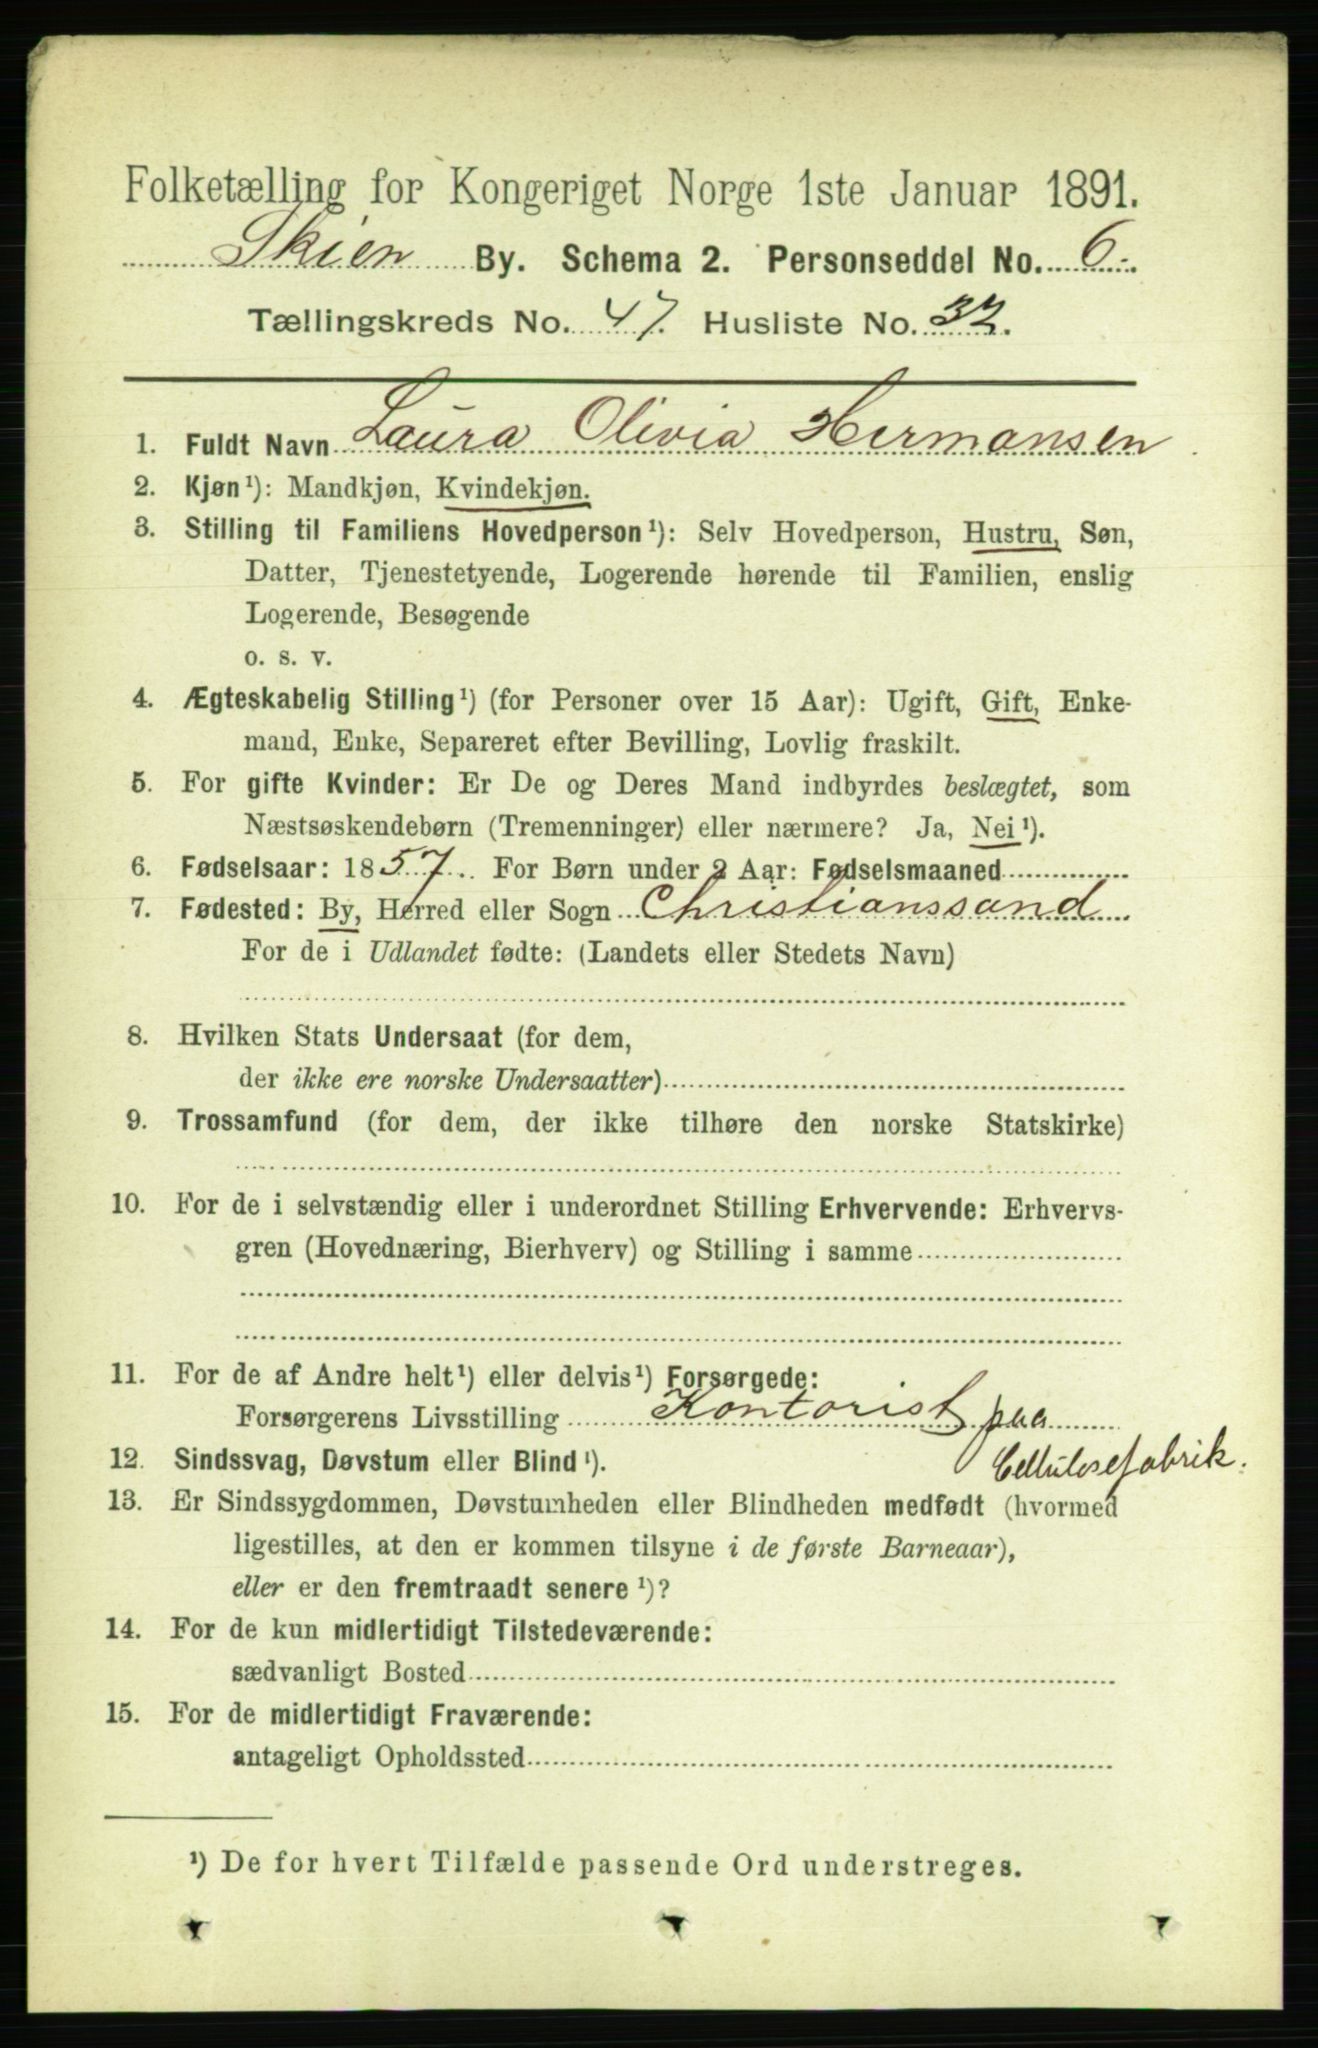 Folketælling for Kongeriget Norge 1ste Januar 1891.
Skien By. Schema 2. Personseddel No. 6.
Tællingskreds No. 47. Husliste No. 32.
1. Fuldt Navn Laura Olivia Hermansen
2. Kjøn¹): Mandkjøn, Kvindekjøn.
3. Stilling til Familiens Hovedperson¹): Selv Hovedperson, Hustru, Søn,
Datter, Tjenestetyende, Logerende hørende til Familien, enslig
Logerende, Besøgende
o. s. v.
4. Ægteskabelig Stilling¹) (for Personer over 15 Aar): Ugift, Gift, Enke-
mand, Enke, Separeret efter Bevilling, Lovlig fraskilt.
5. For gifte Kvinder: Er De og Deres Mand indbyrdes beslægtet, som
Næstsøskendebørn (Tremenninger) eller nærmere? Ja, Nei¹).
6. Fødselsaar: 1857. For Børn under 2 Aar: Fødselsmaaned
7. Fødested: By, Herred eller Sogn Christianssand
For de i Udlandet fødte: (Landets eller Stedets Navn)
8. Hvilken Stats Undersaat (for dem,
der ikke ere norske Undersaatter)
9. Trossamfund (for dem, der ikke tilhøre den norske Statskirke)
10. For de i selvstændig eller i underordnet Stilling Erhvervende: Erhvervs-
gren (Hovednæring, Bierhverv) og Stilling i samme
11. For de af Andre helt¹) eller delvis¹) Forsørgede:
Forsørgerens Livsstilling Kontorist paa
Cellulosefabrik.
12. Sindssvag, Døvstum eller Blind¹).
13. Er Sindssygdommen, Døvstumheden eller Blindheden medfødt (hvormed
ligestilles, at den er kommen tilsyne i de første Barneaar),
eller er den fremtraadt senere¹)?
14. For de kun midlertidigt Tilstedeværende:
sædvanligt Bosted
15. For de midlertidigt Fraværende:
antageligt Opholdssted
¹) De for hvert Tilfælde passende Ord understreges.